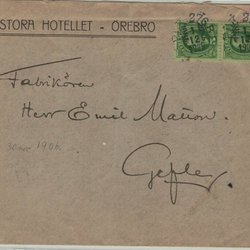 STORA HOTELLET - ÖREBRO
Fabrikören
Herr Emil Matton.
1906.
Gefle.